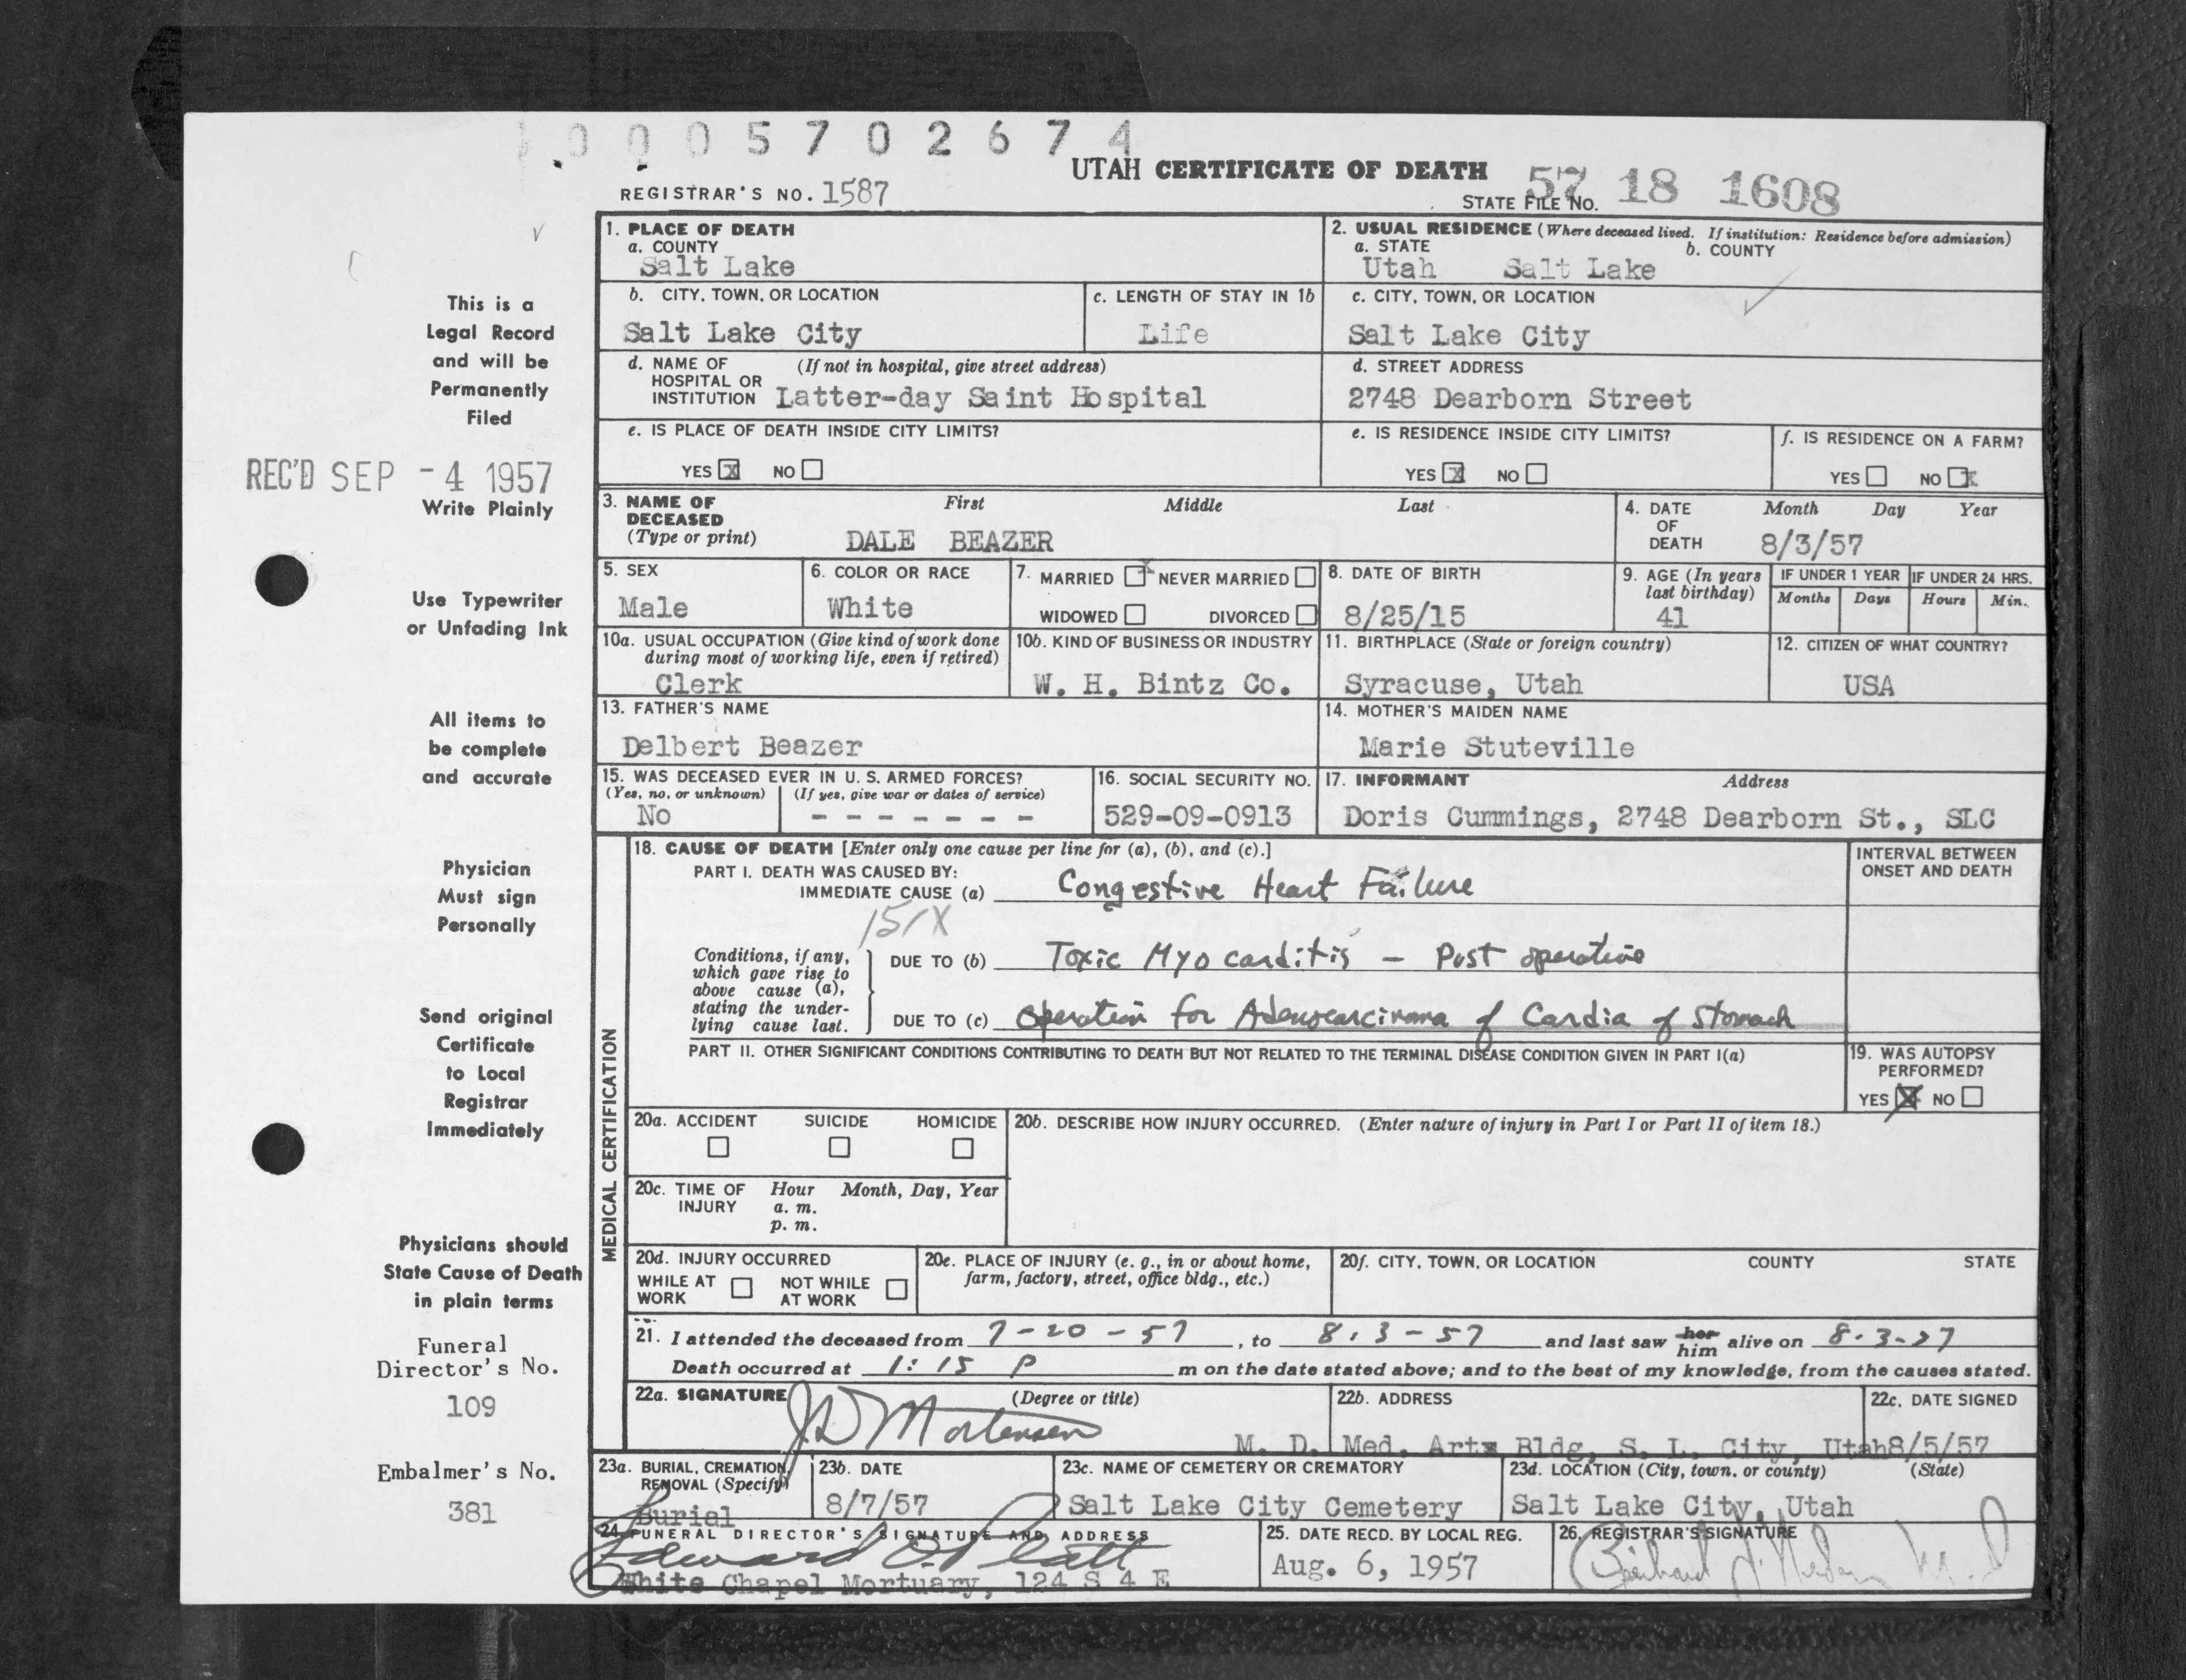 0 0 0 5 7 0 2 6 7 4
UTAH CERTIFICATE OF DEATH
REGISTRAR'S NO. 1587
STATE FILE NO. 57 18 1608
1. PLACE OF DEATH
a. COUNTY
Salt Lake
2. USUAL RESIDENCE (Where deceased lived. If institution: Residence before admission)
a. STATE b. COUNTY
Utah Salt Lake
b. CITY, TOWN, OR LOCATION
Salt Lake City
c. LENGTH OF STAY IN 1b
Life
c. CITY, TOWN, OR LOCATION
Salt Lake City
d. NAME OF (If not in hospital, give street address)
HOSPITAL OR
INSTITUTION Latter-day Saint Hospital
d. STREET ADDRESS
2748 Dearborn Street
e. IS PLACE OF DEATH INSIDE CITY LIMITS?
YES X NO
e. IS RESIDENCE INSIDE CITY LIMITS?
YES X NO
f. IS RESIDENCE ON A FARM?
YES NO X
3. NAME OF First Middle Last
DECEASED
(Type or print) DALE BEAZER
4. DATE Month Day Year
OF
DEATH 8/3/57
5. SEX
Male
6. COLOR OR RACE
White
7. MARRIED X NEVER MARRIED
WIDOWED DIVORCED
8. DATE OF BIRTH
8/25/15
9. AGE (In years
last birthday)
41
IF UNDER 1 YEAR IF UNDER 24 HRS.
Months Days Hours Min.
10a. USUAL OCCUPATION (Give kind of work done
during most of working life, even if retired)
Clerk
10b. KIND OF BUSINESS OR INDUSTRY
W. H. Bintz Co.
11. BIRTHPLACE (State or foreign country)
Syracuse, Utah
12. CITIZEN OF WHAT COUNTRY?
USA
13. FATHER'S NAME
Delbert Beazer
14. MOTHER'S MAIDEN NAME
Marie Stuteville
15. WAS DECEASED EVER IN U. S. ARMED FORCES?
(Yes, no, or unknown) (If yes, give war or dates of service)
No - - - - - - -
16. SOCIAL SECURITY NO.
529-09-0913
17. INFORMANT Address
Doris Cummings, 2748 Dearborn St., SLC
MEDICAL CERTIFICATION
18. CAUSE OF DEATH [Enter only one cause per line for (a), (b), and (c).]
INTERVAL BETWEEN
ONSET AND DEATH
PART I. DEATH WAS CAUSED BY:
IMMEDIATE CAUSE (a) Congestive Heart Failure
151X
Conditions, if any,
which gave rise to
above cause (a),
stating the under-
lying cause last.
DUE TO (b) Toxic Myocarditis - Post operative
DUE TO (c) Operation for Adenocarcinoma of Cardia of Stomach
PART II. OTHER SIGNIFICANT CONDITIONS CONTRIBUTING TO DEATH BUT NOT RELATED TO THE TERMINAL DISEASE CONDITION GIVEN IN PART I(a)
19. WAS AUTOPSY
PERFORMED?
YES X NO
20a. ACCIDENT SUICIDE HOMICIDE
20b. DESCRIBE HOW INJURY OCCURRED. (Enter nature of injury in Part I or Part II of item 18.)
20c. TIME OF Hour Month, Day, Year
INJURY a. m.
p. m.
20d. INJURY OCCURRED
WHILE AT NOT WHILE
WORK AT WORK
20e. PLACE OF INJURY (e. g., in or about home,
farm, factory, street, office bldg., etc.)
20f. CITY, TOWN, OR LOCATION COUNTY STATE
21. I attended the deceased from 7-20-57, to 8-3-57 and last saw her him alive on 8-3-57
Death occurred at 1:15 P m on the date stated above; and to the best of my knowledge, from the causes stated.
22a. SIGNATURE (Degree or title)
J D Mortensen M. D.
22b. ADDRESS
Med. Arts Bldg, S. L. City, Utah
22c. DATE SIGNED
8/5/57
23a. BURIAL, CREMATION,
REMOVAL (Specify)
Burial
23b. DATE
8/7/57
23c. NAME OF CEMETERY OR CREMATORY
Salt Lake City Cemetery
23d. LOCATION (City, town, or county) (State)
Salt Lake City, Utah
24. FUNERAL DIRECTOR'S SIGNATURE AND ADDRESS
Edward O. Platt
White Chapel Mortuary, 124 S 4 E
25. DATE RECD. BY LOCAL REG.
Aug. 6, 1957
26. REGISTRAR'S SIGNATURE
This is a
Legal Record
and will be
Permanently
Filed
REC'D SEP -4 1957
Write Plainly
Use Typewriter
or Unfading Ink
All items to
be complete
and accurate
Physician
Must sign
Personally
Send original
Certificate
to Local
Registrar
Immediately
Physicians should
State Cause of Death
in plain terms
Funeral
Director's No.
109
Embalmer's No.
381